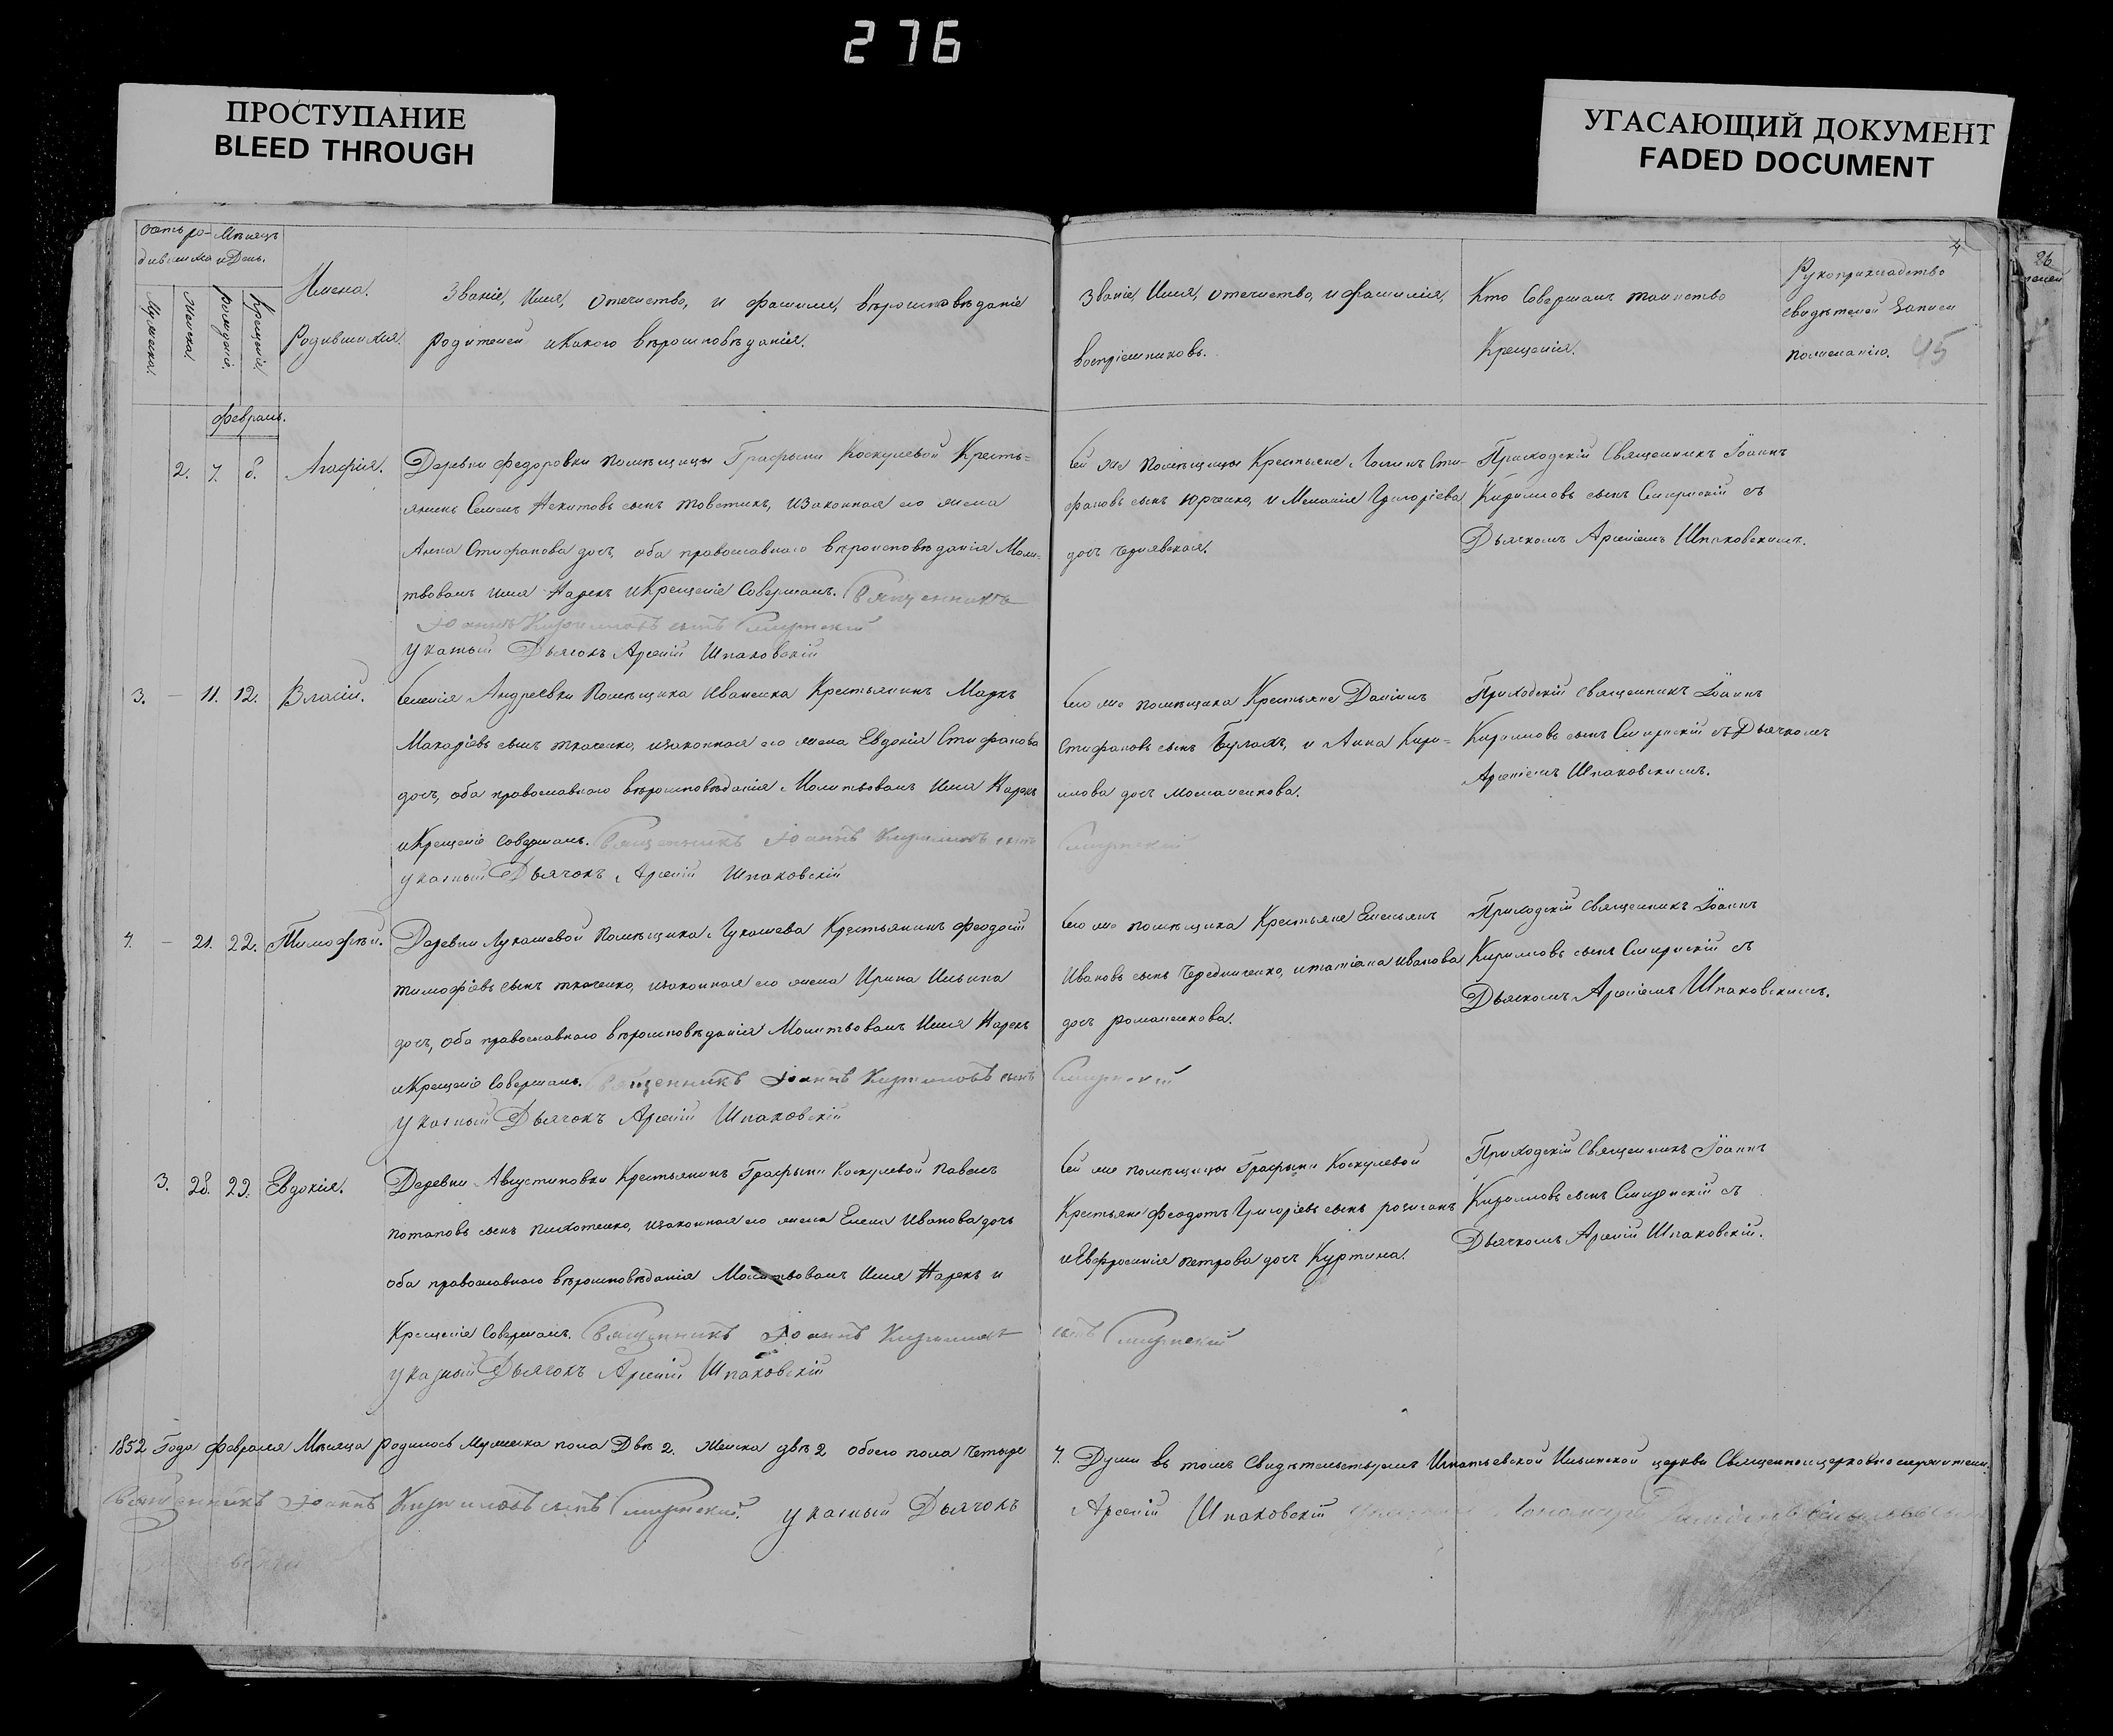 276
ПРОСТУПАНИЕ
BLEED THROUGH
УГАСАЮЩИЙ ДОКУМЕНТ
FADED DOCUMENT
Мѣсяцъ
и День.
Мужеска.
Женска.
рожденіе.
Крещеніе.
Имена.
Родившихся.
Званіе, Имя, Отечество, и фамилія, вѣроисповѣданіе
Родителей и Какого вѣроисповѣданія.
Званіе, Имя, Отечество, и фамилія,
воспріемниковъ.
Кто Совершалъ таинство
Крещенія.
Рукоприкладство
свидѣтелей Записи
пожеланію.
45
26
февраль.
2. 7. 8. Агафія.
Деревни Федоровки помѣщицы Графыни Коскулевой Кресть=
янинъ Семенъ Никитовъ сынъ товстикъ, изаконная его жена
Анна Стифанова дочь, оба православнаго вѣроисповѣданія Моли-
твовалъ имя Нарекъ и Крещеніе Совершалъ. Священникъ
Іоаннъ Кирилловъ сынъ
указный Дьячокъ Арсеній Шпаковскій
Ей же помѣщицы Крестьяне Сти-
фановъ сынъ Юрченко, и Меланія Григоріева
дочь
Приходскій Священникъ Іоаннъ
Кирилловъ сынъ съ
Дьячкомъ Арсеніемъ Шпаковскимъ.
3. — 11. 12. Власій.
Селенія Андреевки помѣщика Иваненка Крестьянинъ Марко
Макаріевъ сынъ ткаченко, изаконная его жена Евдокія Стифанова
дочь, оба православнаго вѣроисповѣданія Молитвовалъ имя Нарекъ
и Крещеніе совершалъ. Священникъ Іоаннъ Кирилловъ сынъ
указный Дьячокъ Арсеній Шпаковскій
Его же помѣщика Крестьяне Даніилъ
Стифановъ сынъ Булахъ, и Анна Кири=
ллова дочь
Приходскій Священникъ Іоаннъ
Кирилловъ сынъ съ Дьячкомъ
Арсеніемъ Шпаковскимъ.
4. — 21. 22. Тимофѣй.
Деревни Лукашевой помѣщика Лукашева Крестьянинъ Феодосій
тимофіевъ сынъ ткаченко, изаконная его жена Ирина Ильина
дочь, оба православнаго вѣроисповѣданія Молитвовалъ Имя Нарекъ
и Крещеніе Совершалъ. Священникъ Іоаннъ Кирилловъ сынъ
указный Дьячокъ Арсеній Шпаковскій
Его же помѣщика Крестьяне Емельянъ
Ивановъ сынъ Чередниченко, и татіана Иванова
дочь романенкова.
Приходскій Священникъ Іоаннъ
Кирилловъ сынъ съ
Дьячкомъ Арсеніемъ Шпаковскимъ.
3. 28. 29. Евдокія.
Деревни Августиновки Крестьянинъ Графыни Коскулевой павелъ
потаповъ сынъ пихотенко, изаконная его жена Елена Иванова дочь
оба православнаго вѣроисповѣданія Молитвовалъ Имя Нарекъ и
Крещеніе Совершалъ. Священникъ Іоаннъ Кирилловъ
указный Дьячокъ Арсеній Шпаковскій
Ей же помѣщицы Графыни Коскулевой
Крестьяне Феодотъ Григоріевъ сынъ
и Евфросинія петрова дочь Куртина.
сынъ
Приходскій Священникъ Іоаннъ
Кирилловъ сынъ съ
Дьячкомъ Арсеній Шпаковскій.
1852 Года февраля Мѣсяца родилось Мужеска пола Двѣ 2. Женска двѣ 2 обоего пола Четыре
4. Души въ томъ Свидѣтельствуемъ Игнатьевской Ильинской церкви Священноицерковнослужители.
Священникъ Іоаннъ Кирилловъ сынъ указный Дьячокъ
Арсеній Шпаковскій